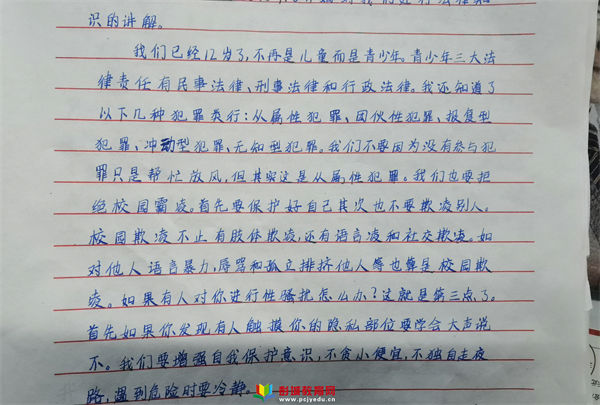 识的讲解。
我们已经12岁了,不再是儿童而是青少年。青少年三大法
律责任有民事法律、刑事法律和行政法律。我还知道了
以下几种犯罪类行:从属性犯罪、团伙性犯罪、报复型
犯罪、冲动型犯罪、无知型犯罪。我们不要因为没有参与犯
罪只是帮忙放风,但其实这是从属性犯罪。我们也要拒
绝校园霸凌。首先要保护好自己其次也不要欺凌别人。
校园欺凌不止有肢体欺凌,还有语言凌和社交欺凌。如
对他人语言暴力,辱骂和孤立排挤他人等也算是校园欺
凌。如果有人对你进行性骚扰怎么办?这就是第三点了。
首先如果你发现有人触摸你的隐私部位要学会大声说
不。我们要增强自我保护意识,不贪小便宜,不独自走夜
路,遇到危险时要冷静。
彭博教育网
www.pcjyedu.cn